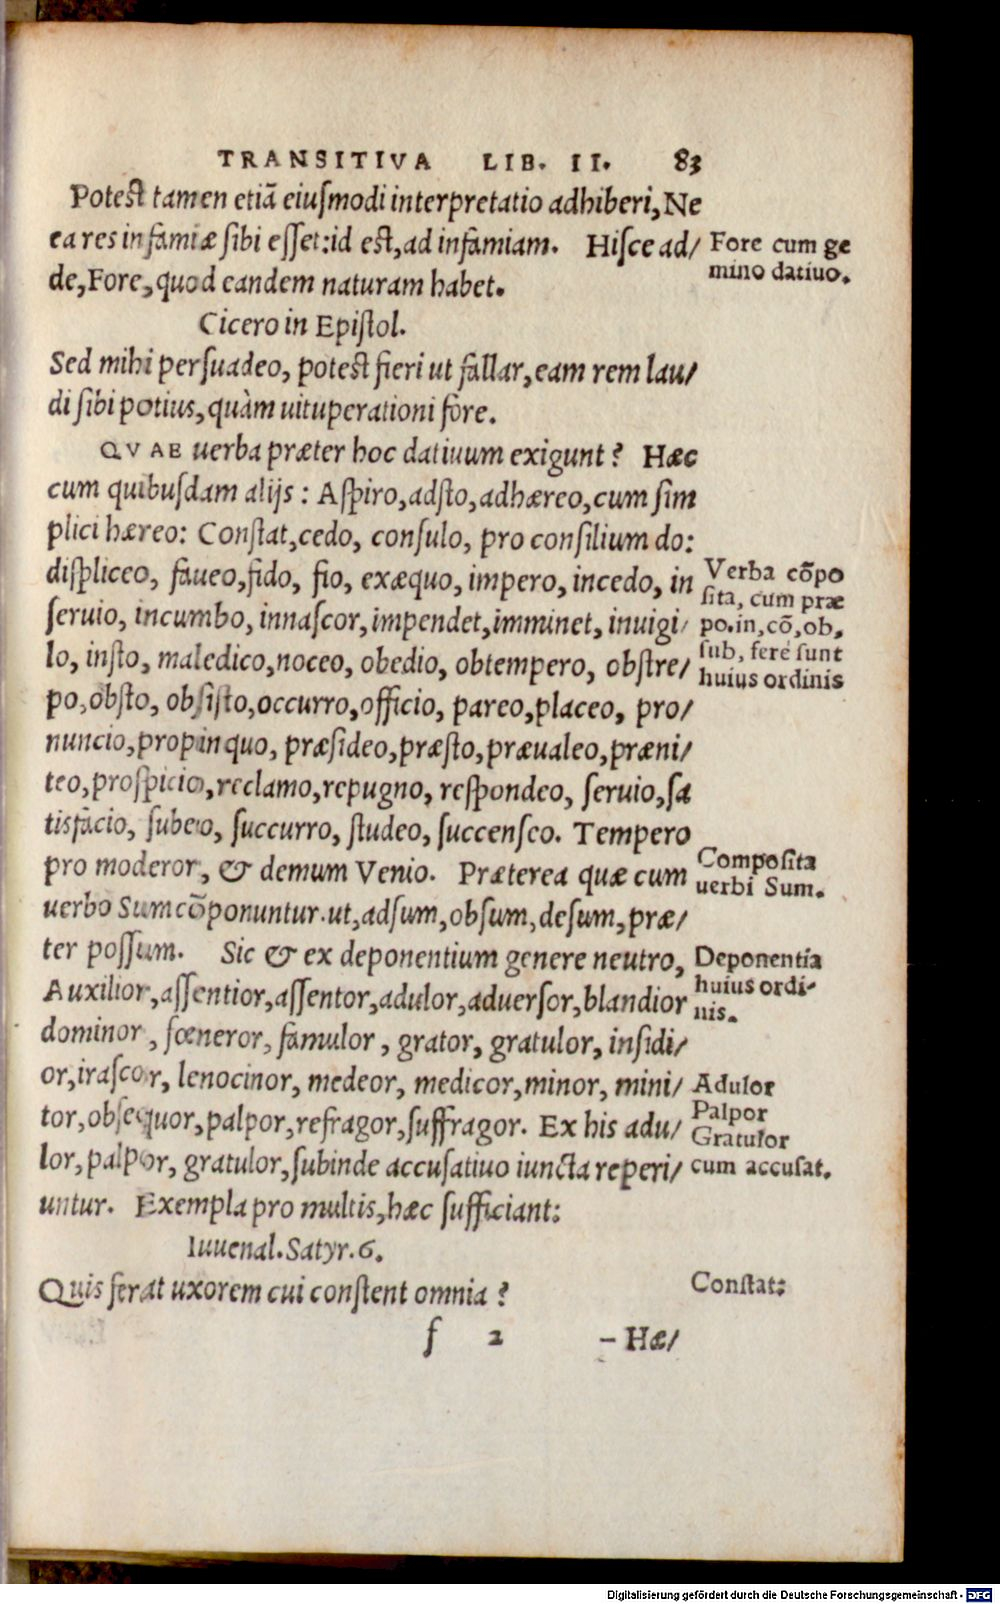 TRANSITIVA LIB. II. 83
Potest tamen etiã eiuſmodi interpretatio adhiberi, Ne
ea res infamiæ ſibi eſſet: id eſt, ad infamiam. Hiſce ad/
de, Fore, quod eandem naturam habet.
Fore cum ge
mino datiuo.
Cicero in Epiſtol.
Sed mihi perſuadeo, poteſt fieri ut fallar, eam rem lau/
di ſibi potius, quàm uituperationi fore.
QVAE uerba præter hoc datiuum exigunt? Hæc
cum quibuſdam alijs: Aſpiro, adſto, adhæreo, cum ſim
plici hæreo: Conſtat, cedo, conſulo, pro conſilium do:
diſpliceo, faueo, fido, fio, exæquo, impero, incedo, in
ſeruio, incumbo, innaſcor, impendet, imminet, inuigi/
lo, inſto, maledico, noceo, obedio, obtempero, obſtre/
po, obſto, obſiſto, occurro, officio, pareo, placeo, pro/
nuncio, propinquo, præſideo, præſto, præualeo, præni/
teo, proſpicio, reclamo, repugno, reſpondeo, ſeruio, ſa
tisfacio, ſubeo, ſuccurro, ſtudeo, ſuccenſeo. Tempero
pro moderor, & demum Venio. Præterea quæ cum
uerbo Sum cõponuntur. ut, adſum, obſum, deſum, præ/
ter poſſum. Sic & ex deponentium genere neutro,
Auxilior, aſſentior, aſſentor, adulor, aduerſor, blandior
dominor, fœneror, famulor, grator, gratulor, inſidi/
or, iraſcor, lenocinor, medeor, medicor, minor, mini/
tor, obſequor, palpor, refragor, ſuffragor. Ex his adu/
lor, palpor, gratulor, ſubinde accuſatiuo iuncta reperi/
untur. Exempla pro multis, hæc ſufficiant:
Verba cõpo
ſita, cum præ
po. in, cõ, ob,
ſub, fere ſunt
huius ordinis
Compoſita
uerbi Sum.
Deponentia
huius ordi-
nis.
Adulor
Palpor
Gratulor
cum accuſat.
Iuuenal. Satyr. 6.
Quis ferat uxorem cui conſtent omnia?
Conſtat:
f 2 – Hæ/
Digitalisierung gefördert durch die Deutsche Forschungsgemeinschaft - DFG